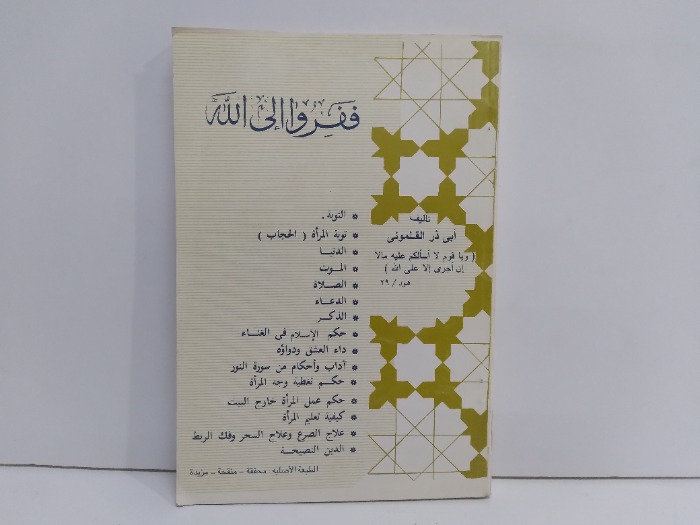 ففروا إلى الله
تأليف
أبى ذر القلمونى
( ويا قوم لا أسألكم عليه مالا
إن أجرى إلا على الله )
هود / ٢٩
* التوبة .
* توبة المرأة ( الحجاب )
* الدنيا
* الموت
* الصلاة
* الدعاء
* الذكر
* حكم الإسلام فى الغناء
* داء العشق ودواؤه
* آداب وأحكام من سورة النور
* حكم تغطية وجه المرأة
* حكم عمل المرأة خارج البيت
* كيفية تعليم المرأة
* علاج الصرع وعلاج السحر وفك الربط
* الدين النصيحة
الطبعة الأصلية : محققة - منقحة - مزيدة